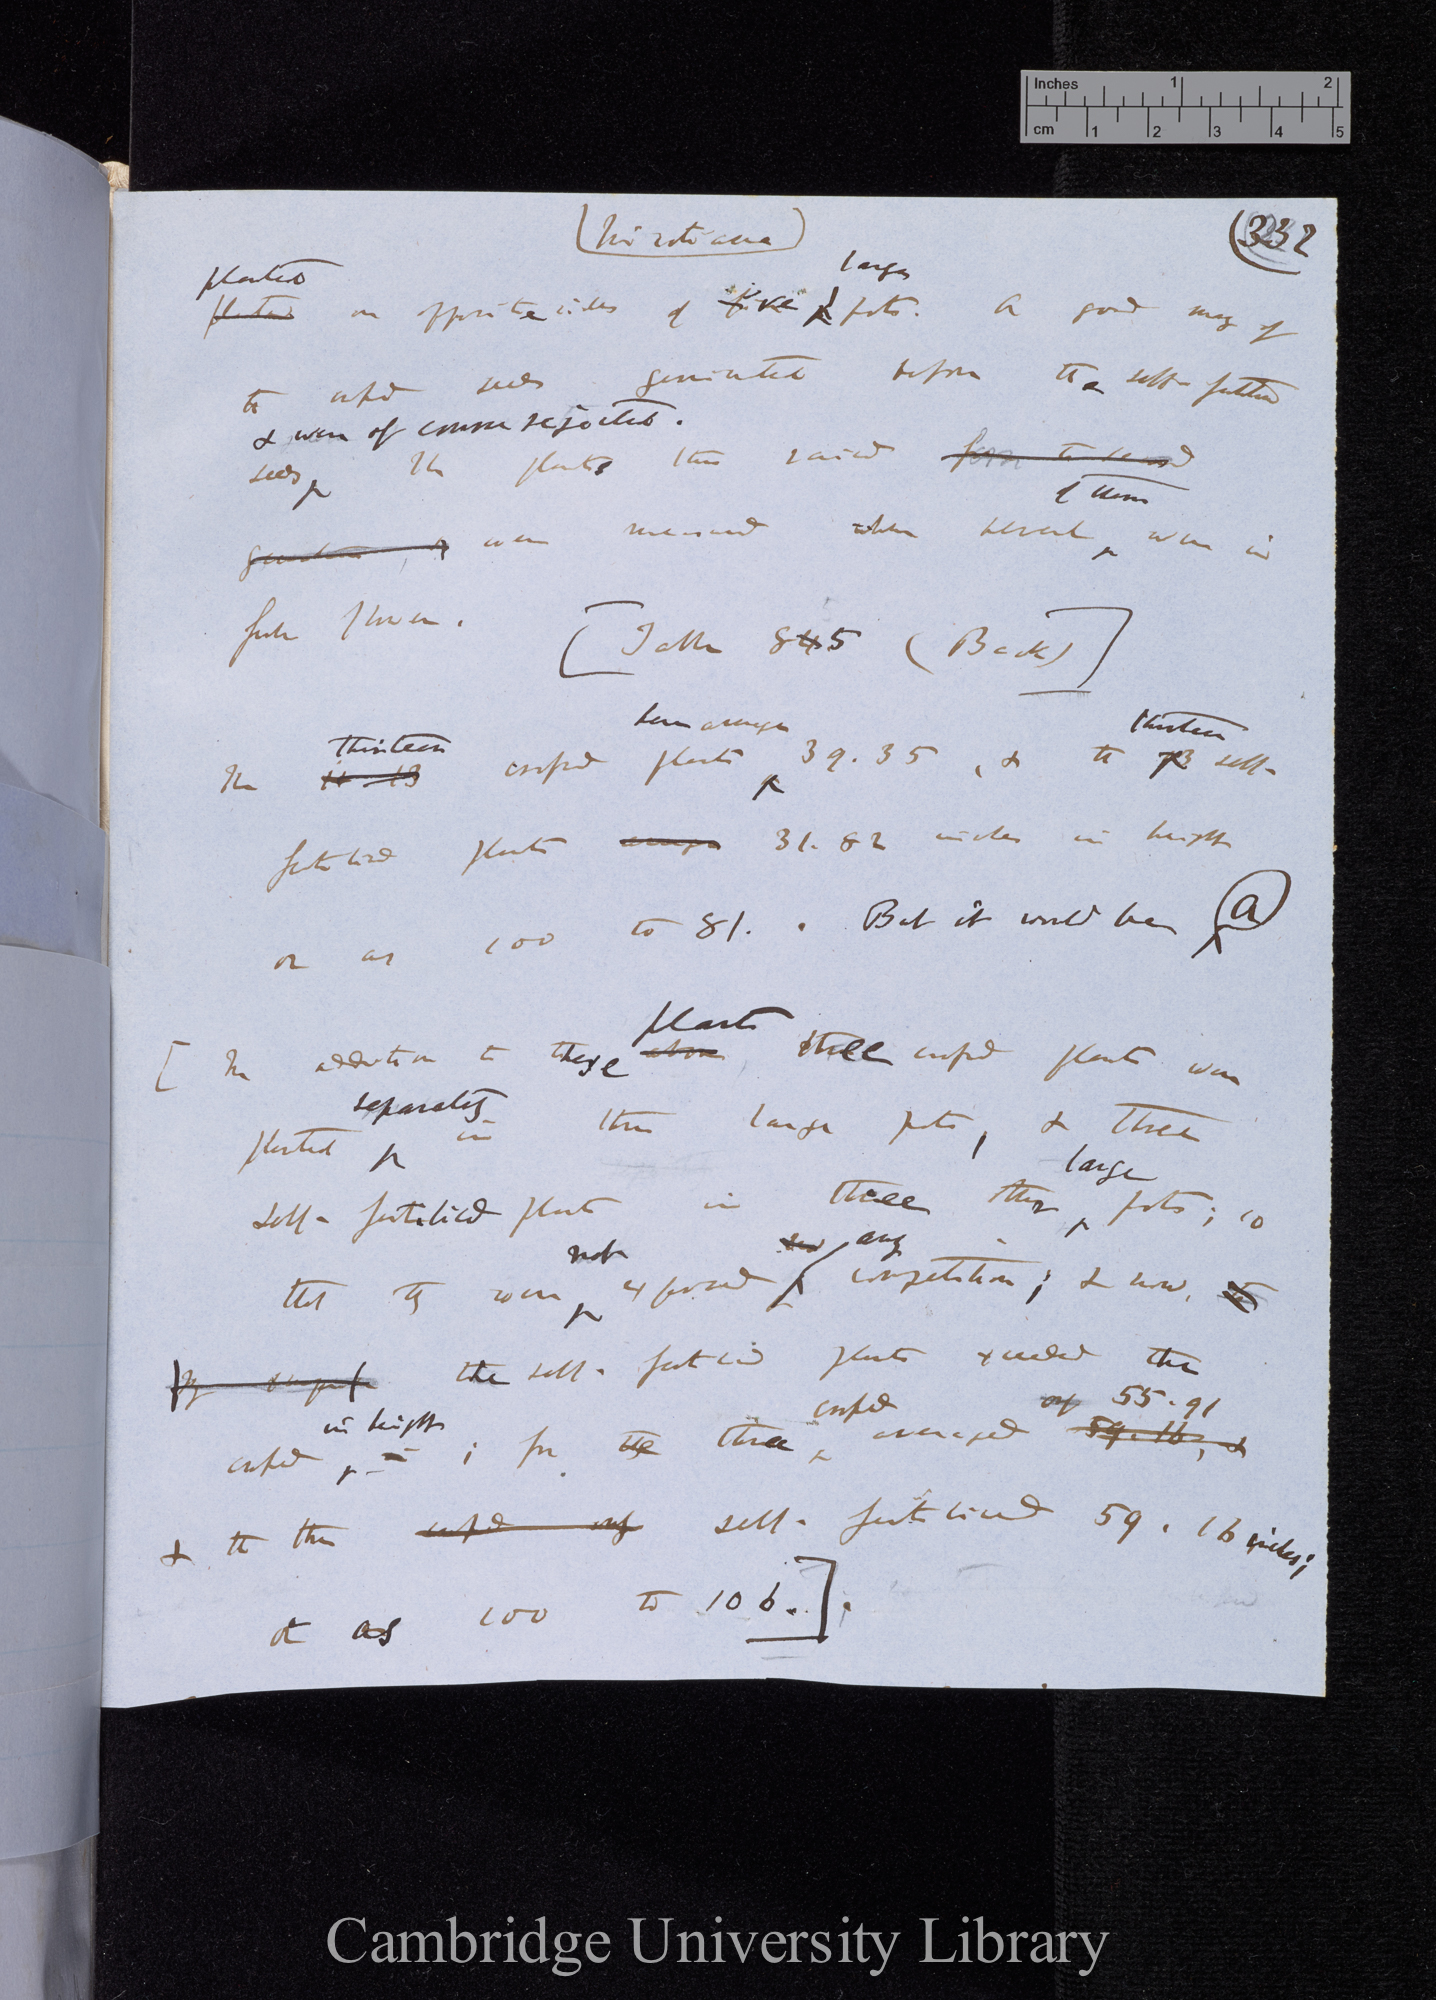 Inches 1 2
cm 1 2 3 4 5
(Nicotiana)
(332
planted large
planted on opposite sides of five pots. A good many of
the crossed seeds germinated before the self-fertilised
& were of course rejected.
seeds The plants thus raised
of them
were measured when several were in
full flower. [Table 845 (Back)]
thirteen here averages thirteen
The 13 crossed plants 39.35, & the 13 self-
fertilised plants average 31.82 inches in height
or as 100 to 81. But it would have (a)
plants
[In addition to these above three crossed plants were
separately
planted in three large pots, & three
large
self-fertilised plants in three other pots; so
not any
that they were exposed competition; & now, the
the self-fertilised plants exceeded the
in height crossed 55.91
crossed; for the three averaged 59.16, &
& the three crossed self-fertilised 59.16 inches;
or as 100 to 106.]
Cambridge University Library